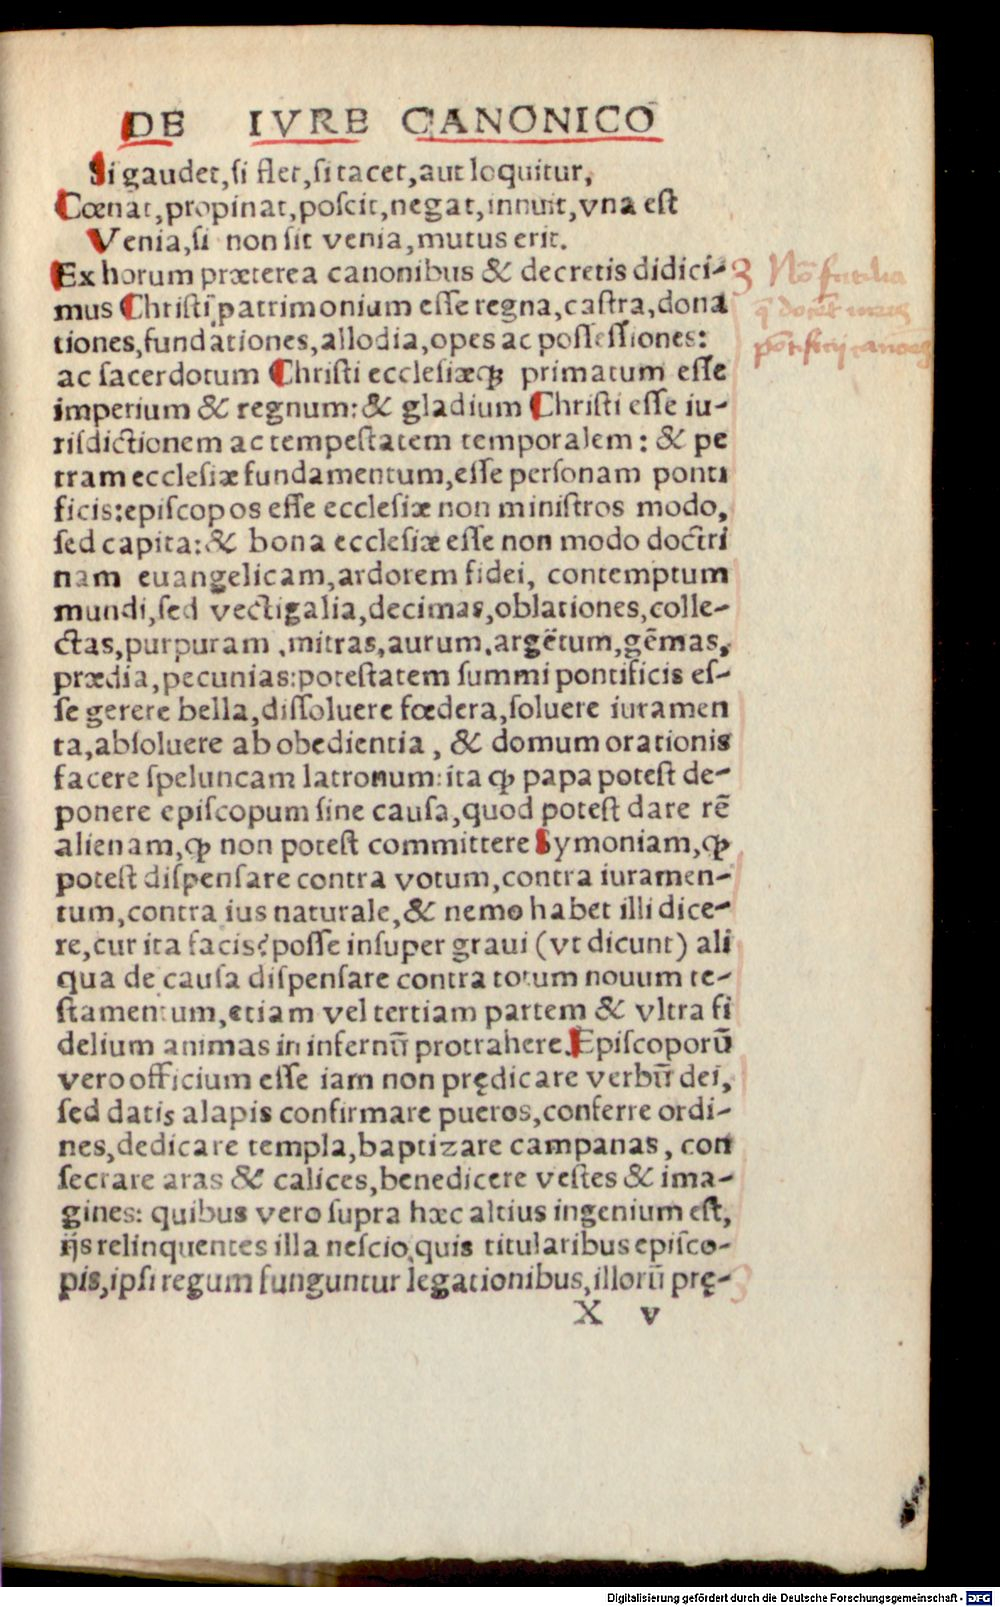 DE IVRE CANONICO
Si gaudet, si flet, si tacet, aut loquitur,
Cœnat, propinat, poscit, negat, innuit, vna est
Venia, si non sit venia, mutus erit.
Ex horum præterea canonibus & decretis didici-
mus Christi patrimonium esse regna, castra, dona
tiones, fundationes, allodia, opes ac possessiones:
ac sacerdotum Christi ecclesiæqꝫ primatum esse
imperium & regnum: & gladium Christi esse iu-
risdictionem ac tempestatem temporalem: & pe
tram ecclesiæ fundamentum, esse personam ponti
ficis: episcopos esse ecclesiæ non ministros modo,
sed capita: & bona ecclesiæ esse non modo doctri
nam euangelicam, ardorem fidei, contemptum
mundi, sed vectigalia, decimas, oblationes, colle-
ctas, purpuram, mitras, aurum, argētum, gēmas,
prædia, pecunias: potestatem summi pontificis es-
se gerere bella, dissoluere fœdera, soluere iuramen
ta, absoluere ab obedientia, & domum orationis
facere speluncam latronum: ita ꝙ papa potest de-
ponere episcopum sine causa, quod potest dare rē
alienam, ꝙ non potest committere Symoniam, ꝙ
potest dispensare contra votum, contra iuramen-
tum, contra ius naturale, & nemo habet illi dice-
re, cur ita facis? posse insuper graui (vt dicunt) ali
qua de causa dispensare contra totum nouum te-
stamentum, etiam vel tertiam partem & vltra fi
delium animas in infernū protrahere. Episcoporū
vero officium esse iam non prędicare verbū dei,
sed datis alapis confirmare pueros, conferre ordi-
nes, dedicare templa, baptizare campanas, con
secrare aras & calices, benedicere vestes & ima-
gines: quibus vero supra hæc altius ingenium est,
ijs relinquentes illa nescio quis titularibus episco-
pis, ipsi regum funguntur legationibus, illorū prę-
X v
Digitalisierung gefördert durch die Deutsche Forschungsgemeinschaft - DFG